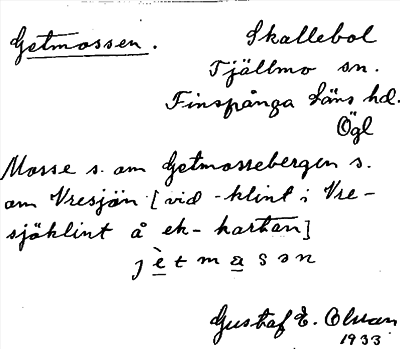 Getmossen.
Skallebol
Tjällmo sn.
Finspånga läns hd.
Ögl
Mosse s. om Getmossebergen s.
om Vresjön [vid -klint i Vre-
sjöklint å ek-kartan]
jètmasən
Gustaf E. Olsson
1933